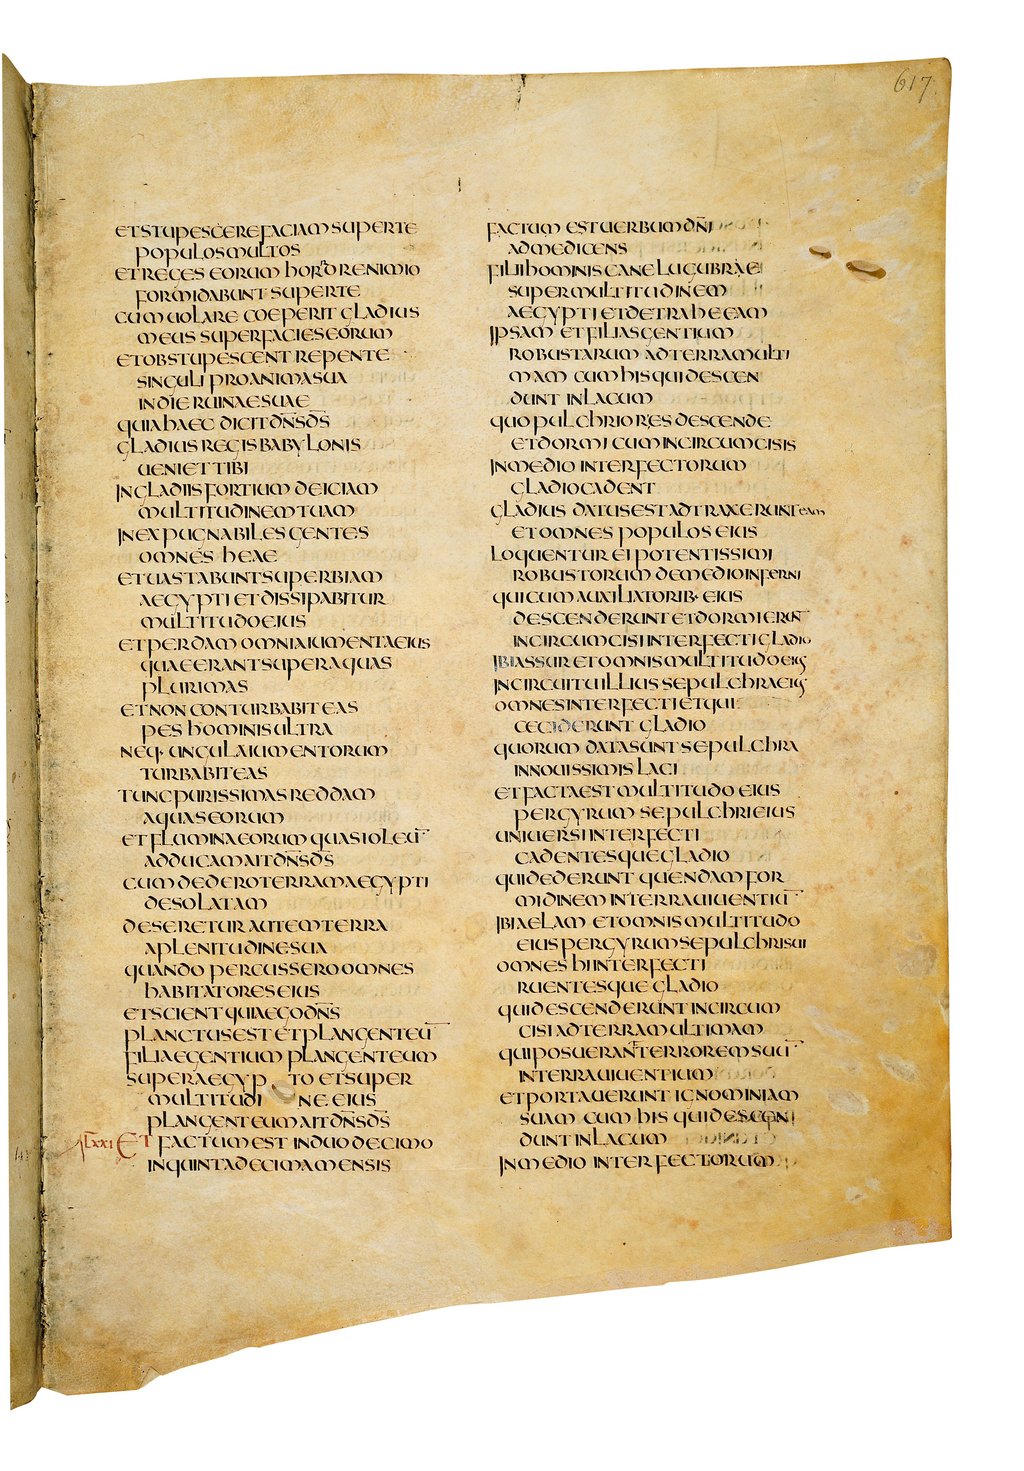 617
ET STUPESCERE FACIAM SUPER TE
POPULOS MULTOS
ET REGES EORUM HORRORE NIMIO
FORMIDABUNT SUPER TE
CUM UOLARE COEPERIT GLADIUS
MEUS SUPER FACIES EORUM
ET OBSTUPESCENT REPENTE
SINGULI PRO ANIMA SUA
IN DIE RUINAE SUAE
QUIA HAEC DICIT DN̄S DS̄
GLADIUS REGIS BABYLONIS
UENIET TIBI
IN GLADIIS FORTIUM DEICIAM
MULTITUDINEM TUAM
INEXPUGNABILES GENTES
OMNES HEAE
ET UASTABUNT SUPERBIAM
AEGYPTI ET DISSIPABITUR
MULTITUDO EIUS
ET PERDAM OMNIA IUMENTA EIUS
QUAE ERANT SUPER AQUAS
PLURIMAS
ET NON CONTURBABIT EAS
PES HOMINIS ULTRA
NEQ· UNGULA IUMENTORUM
TURBABIT EAS
TUNC PURISSIMAS REDDAM
AQUAS EORUM
ET FLUMINA EORUM QUASI OLEŪ
ADDUCAM AIT DN̄S DS̄
CUM DEDERO TERRAM AEGYPTI
DESOLATAM
DESERETUR AUTEM TERRA
A PLENITUDINE SUA
QUANDO PERCUSSERO OMNES
HABITATORES EIUS
ET SCIENT QUIA EGO DN̄S
PLANCTUS EST ET PLANGENT EŪ
FILIAE GENTIUM PLANGENT EUM
SUPER AEGYP TO ET SUPER
MULTITUDI NE EIUS
PLANGENT EUM AIT DN̄S DS̄
LXXI ET FACTUM EST IN DUODECIMO
IN QUINTA DECIMA MENSIS
FACTUM EST UERBUM DN̄I
AD ME DICENS
FILI HOMINIS CANE LUGUBRAE
SUPER MULTITUDINEM
AEGYPTI ET DETRAHE EAM
IPSAM ET FILIAS GENTIUM
ROBUSTARUM AD TERRAM ULTI
MAM CUM HIS QUI DESCEN
DUNT IN LACUM
QUO PULCHRIOR ES DESCENDE
ET DORMI CUM INCIRCUMCISIS
IN MEDIO INTERFECTORUM
GLADIO CADENT
GLADIUS DATUS EST ADTRAXERUNT EAM
ET OMNES POPULOS EIUS
LOQUENTUR EI POTENTISSIMI
ROBUSTORUM DE MEDIO INFERNI
QUI CUM AUXILIATORIB· EIUS
DESCENDERUNT ET DORMIERUNT
INCIRCUMCISI INTERFECTI GLADIO
IBI ASSUR ET OMNIS MULTITUDO EIUS
IN CIRCUITU ILLIUS SEPULCHRA EIUS
OMNES INTERFECTI ET QUI
CECIDERUNT GLADIO
QUORUM DATA SUNT SEPULCHRA
IN NOUISSIMIS LACI
ET FACTA EST MULTITUDO EIUS
PER GYRUM SEPULCHRI EIUS
UNIUERSI INTERFECTI
CADENTESQUE GLADIO
QUI DEDERUNT QUENDAM FOR
MIDINEM IN TERRA UIUENTIŪ
IBI AELAM ET OMNIS MULTITUDO
EIUS PER GYRUM SEPULCHRI SUI
OMNES HI INTERFECTI
RUENTESQUE GLADIO
QUI DESCENDERUNT INCIRCUM
CISI AD TERRAM ULTIMAM
QUI POSUERANT TERROREM SUŪ
IN TERRA UIUENTIUM
ET PORTAUERUNT IGNOMINIAM
SUAM CUM HIS QUI DESCEN
DUNT IN LACUM
IN MEDIO INTERFECTORUM